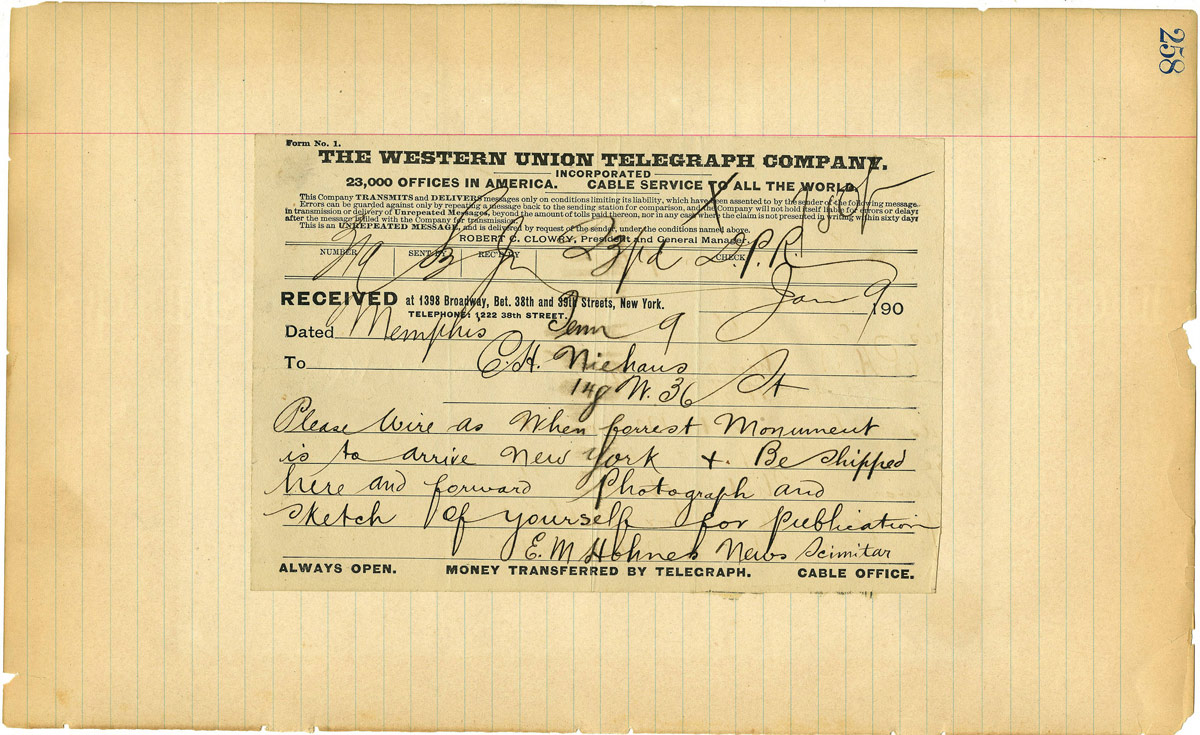 258
Form No. 1.
THE WESTERN UNION TELEGRAPH COMPANY.
INCORPORATED
23,000 OFFICES IN AMERICA. CABLE SERVICE TO ALL THE WORLD.
This Company TRANSMITS and DELIVERS messages only on conditions limiting its liability, which have been assented to by the sender of the following message.
Errors can be guarded against only by repeating a message back to the sending station for comparison, and the Company will not hold itself liable for errors or delays
in transmission or delivery of Unrepeated Messages, beyond the amount of tolls paid thereon, nor in any case where the claim is not presented in writing within sixty days
after the message is filed with the Company for transmission.
This is an UNREPEATED MESSAGE, and is delivered by request of the sender, under the conditions named above.
ROBERT C. CLOWRY, President and General Manager.
NUMBER SENT BY REC'D BY CHECK
23 pd D.P.R.
RECEIVED at 1398 Broadway, Bet. 38th and 39th Streets, New York.
TELEPHONE: 1,222 38th STREET.
Jan 9 190
Dated Memphis Tenn 9
To C.H. Niehaus
149 W. 36 St
Please Wire as When forrest Monument
is to arrive New York +. Be shipped
here and forward Photograph and
sketch of yourself for publication
E. M Holmes News Scimitar
ALWAYS OPEN. MONEY TRANSFERRED BY TELEGRAPH. CABLE OFFICE.